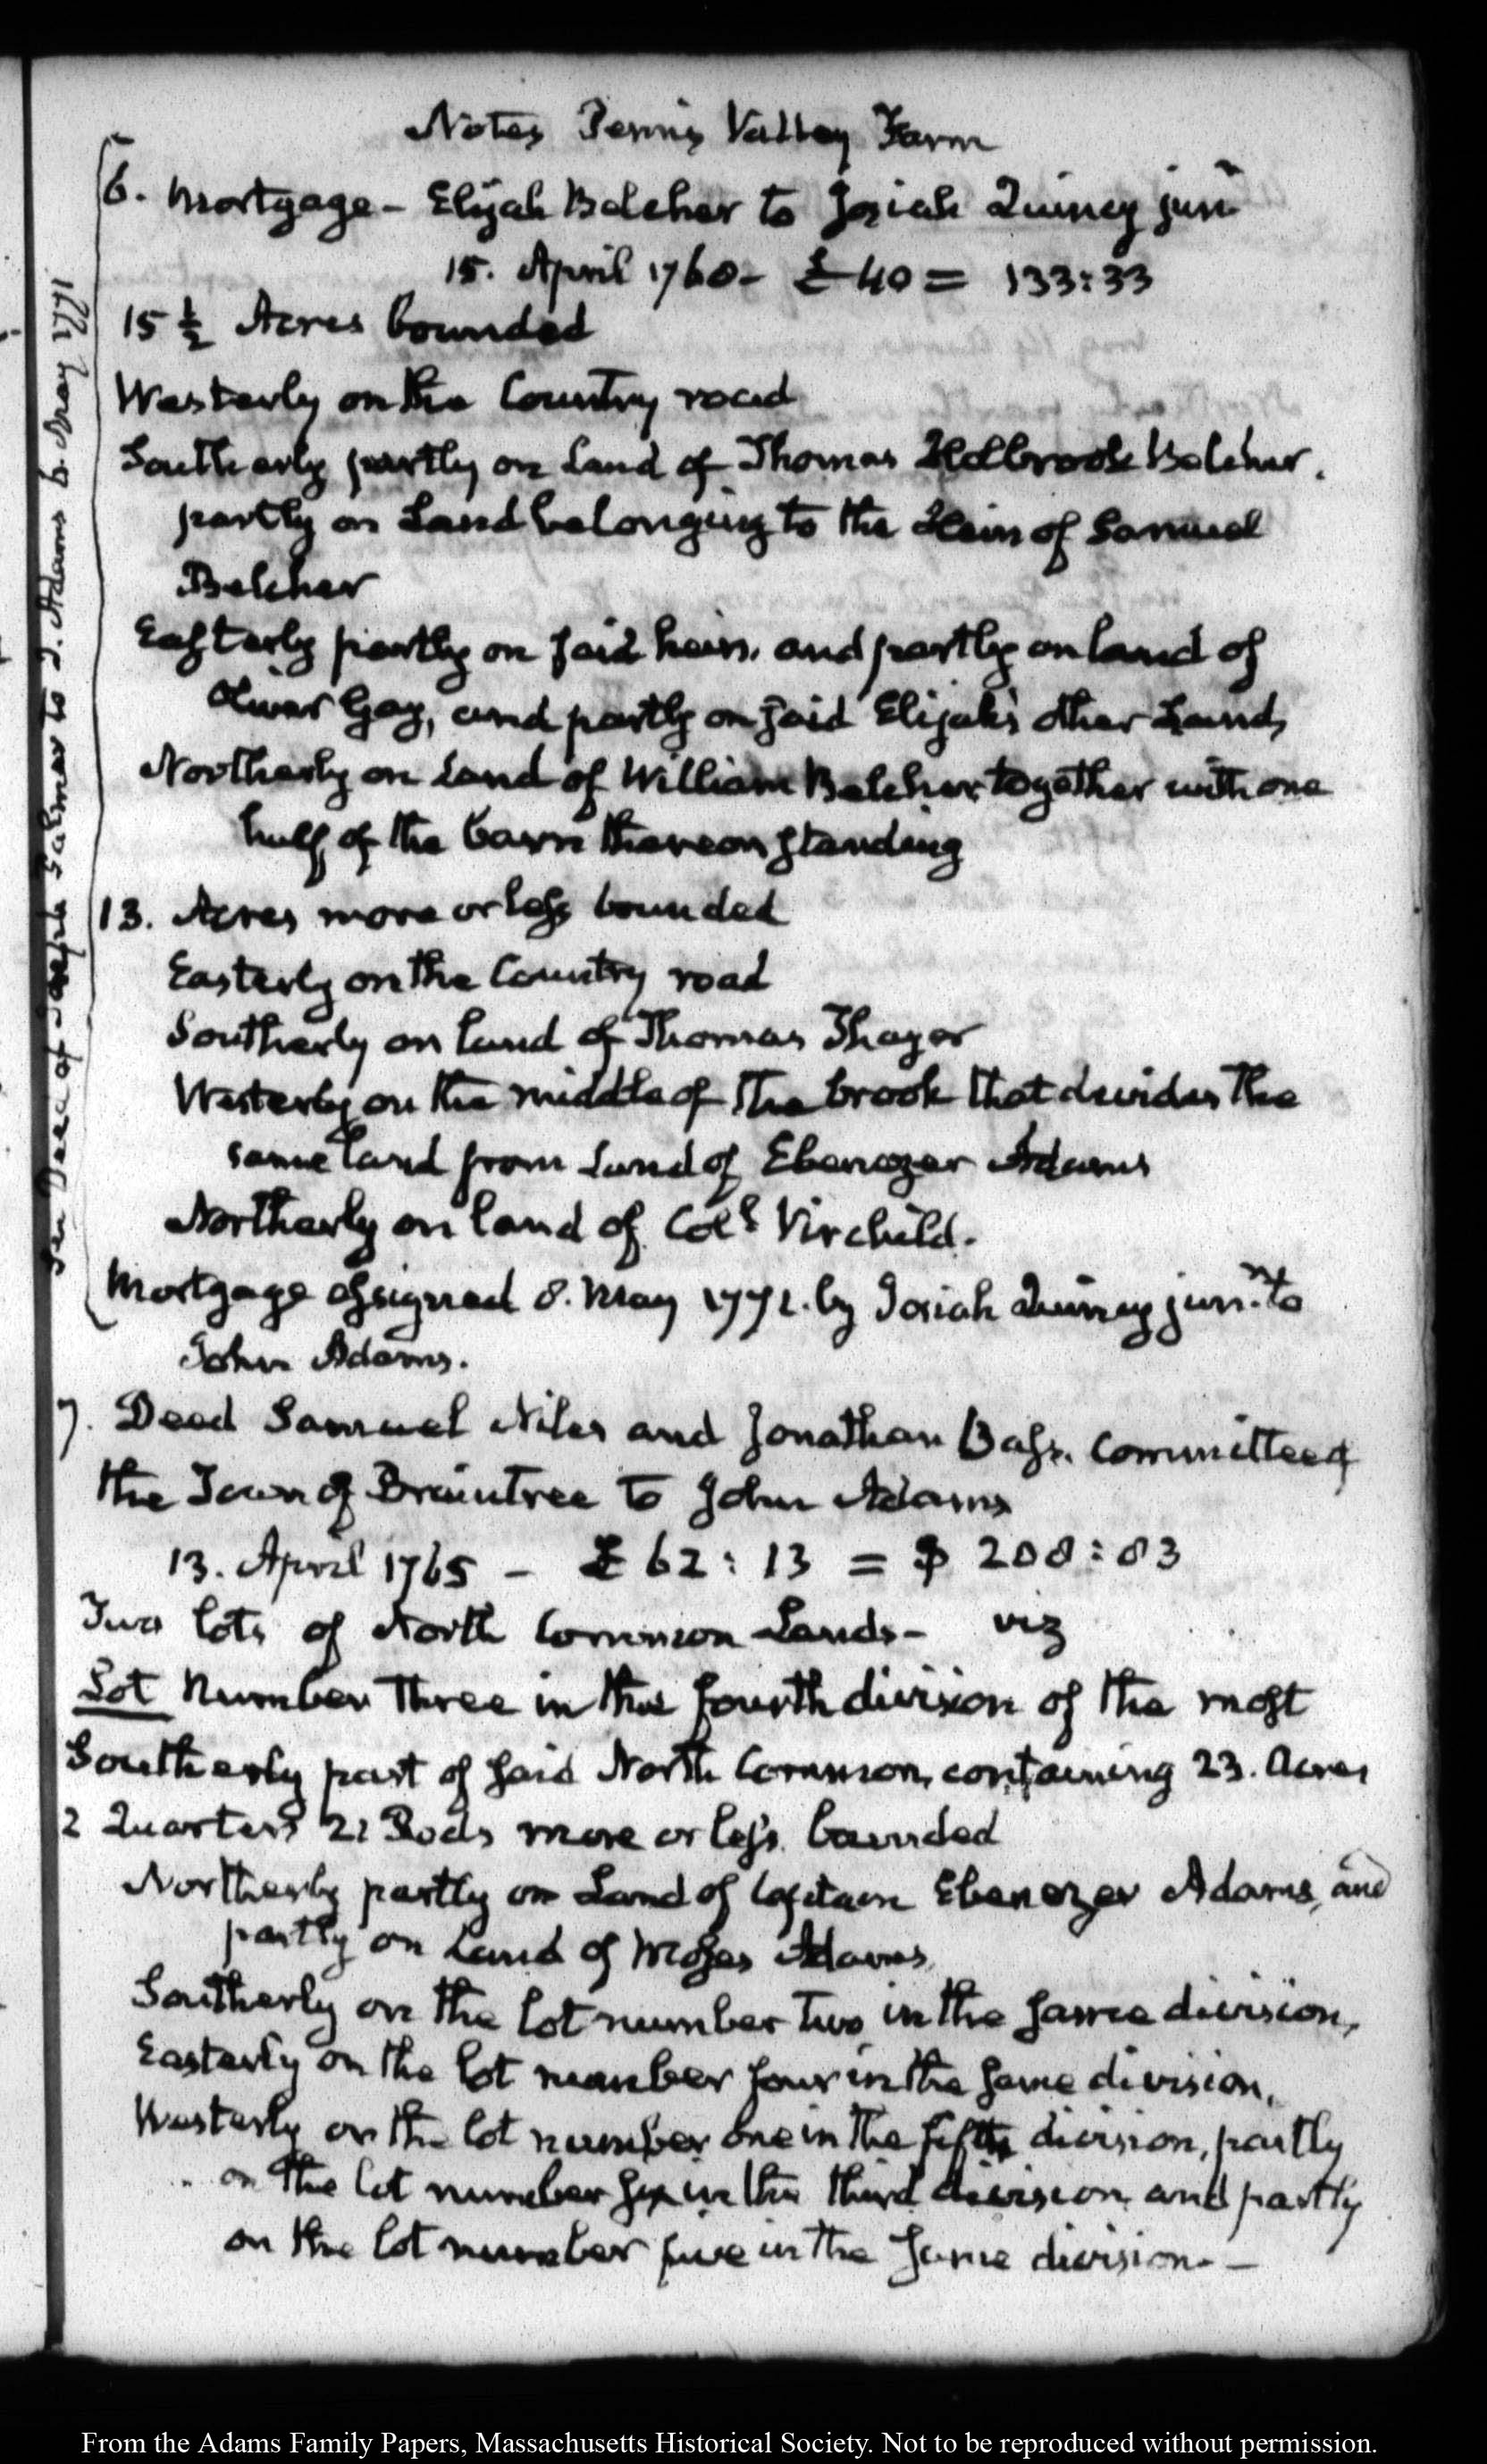 Notes Penns Valley Farm
6. Mortgage - Elijah Belcher to Josiah Quincy junr
15. April 1760 - £40 = 133:33
15 ½ Acres bounded
Westerly on the Country road
Southerly partly on Land of Thomas Holbrook Belcher.
partly on Land belonging to the Heirs of Samuel
Belcher
Easterly partly on said heirs, and partly on land of
Oliver Gay, and partly on said Elijah's other Land,
Northerly on Land of William Belcher, together with one
half of the barn thereon standing
13. Acres more or less bounded
Easterly on the Country road
Southerly on land of Thomas Thayer
Westerly on the middle of the brook that divides the
same land from Land of Ebenezer Adams
Northerly on land of Coll Virchild.
Mortgage assigned 8. May 1771. by Josiah Quincy junr. to
John Adams.
See Deed of Joseph Palmer to J. Adams 6. May 1771
7. Deed Samuel Niles and Jonathan Bass. Committee of
the Town of Braintree to John Adams
13. April 1765 - £62:13 = $ 208:83
Two lots of North Common Lands - viz
Lot Number Three in the fourth division of the most
Southerly part of said North Common, containing 23. Acres
2 Quarters 21 Rods more or less. bounded
Northerly partly on Land of Captain Ebenezer Adams, and
partly on Land of Moses Adams,
Southerly on the lot number two in the same division,
Easterly on the lot number four in the same division,
Westerly on the lot number one in the fifth division, partly
on the lot number six in the third division, and partly
on the lot number five in the same division. -
From the Adams Family Papers, Massachusetts Historical Society. Not to be reproduced without permission.